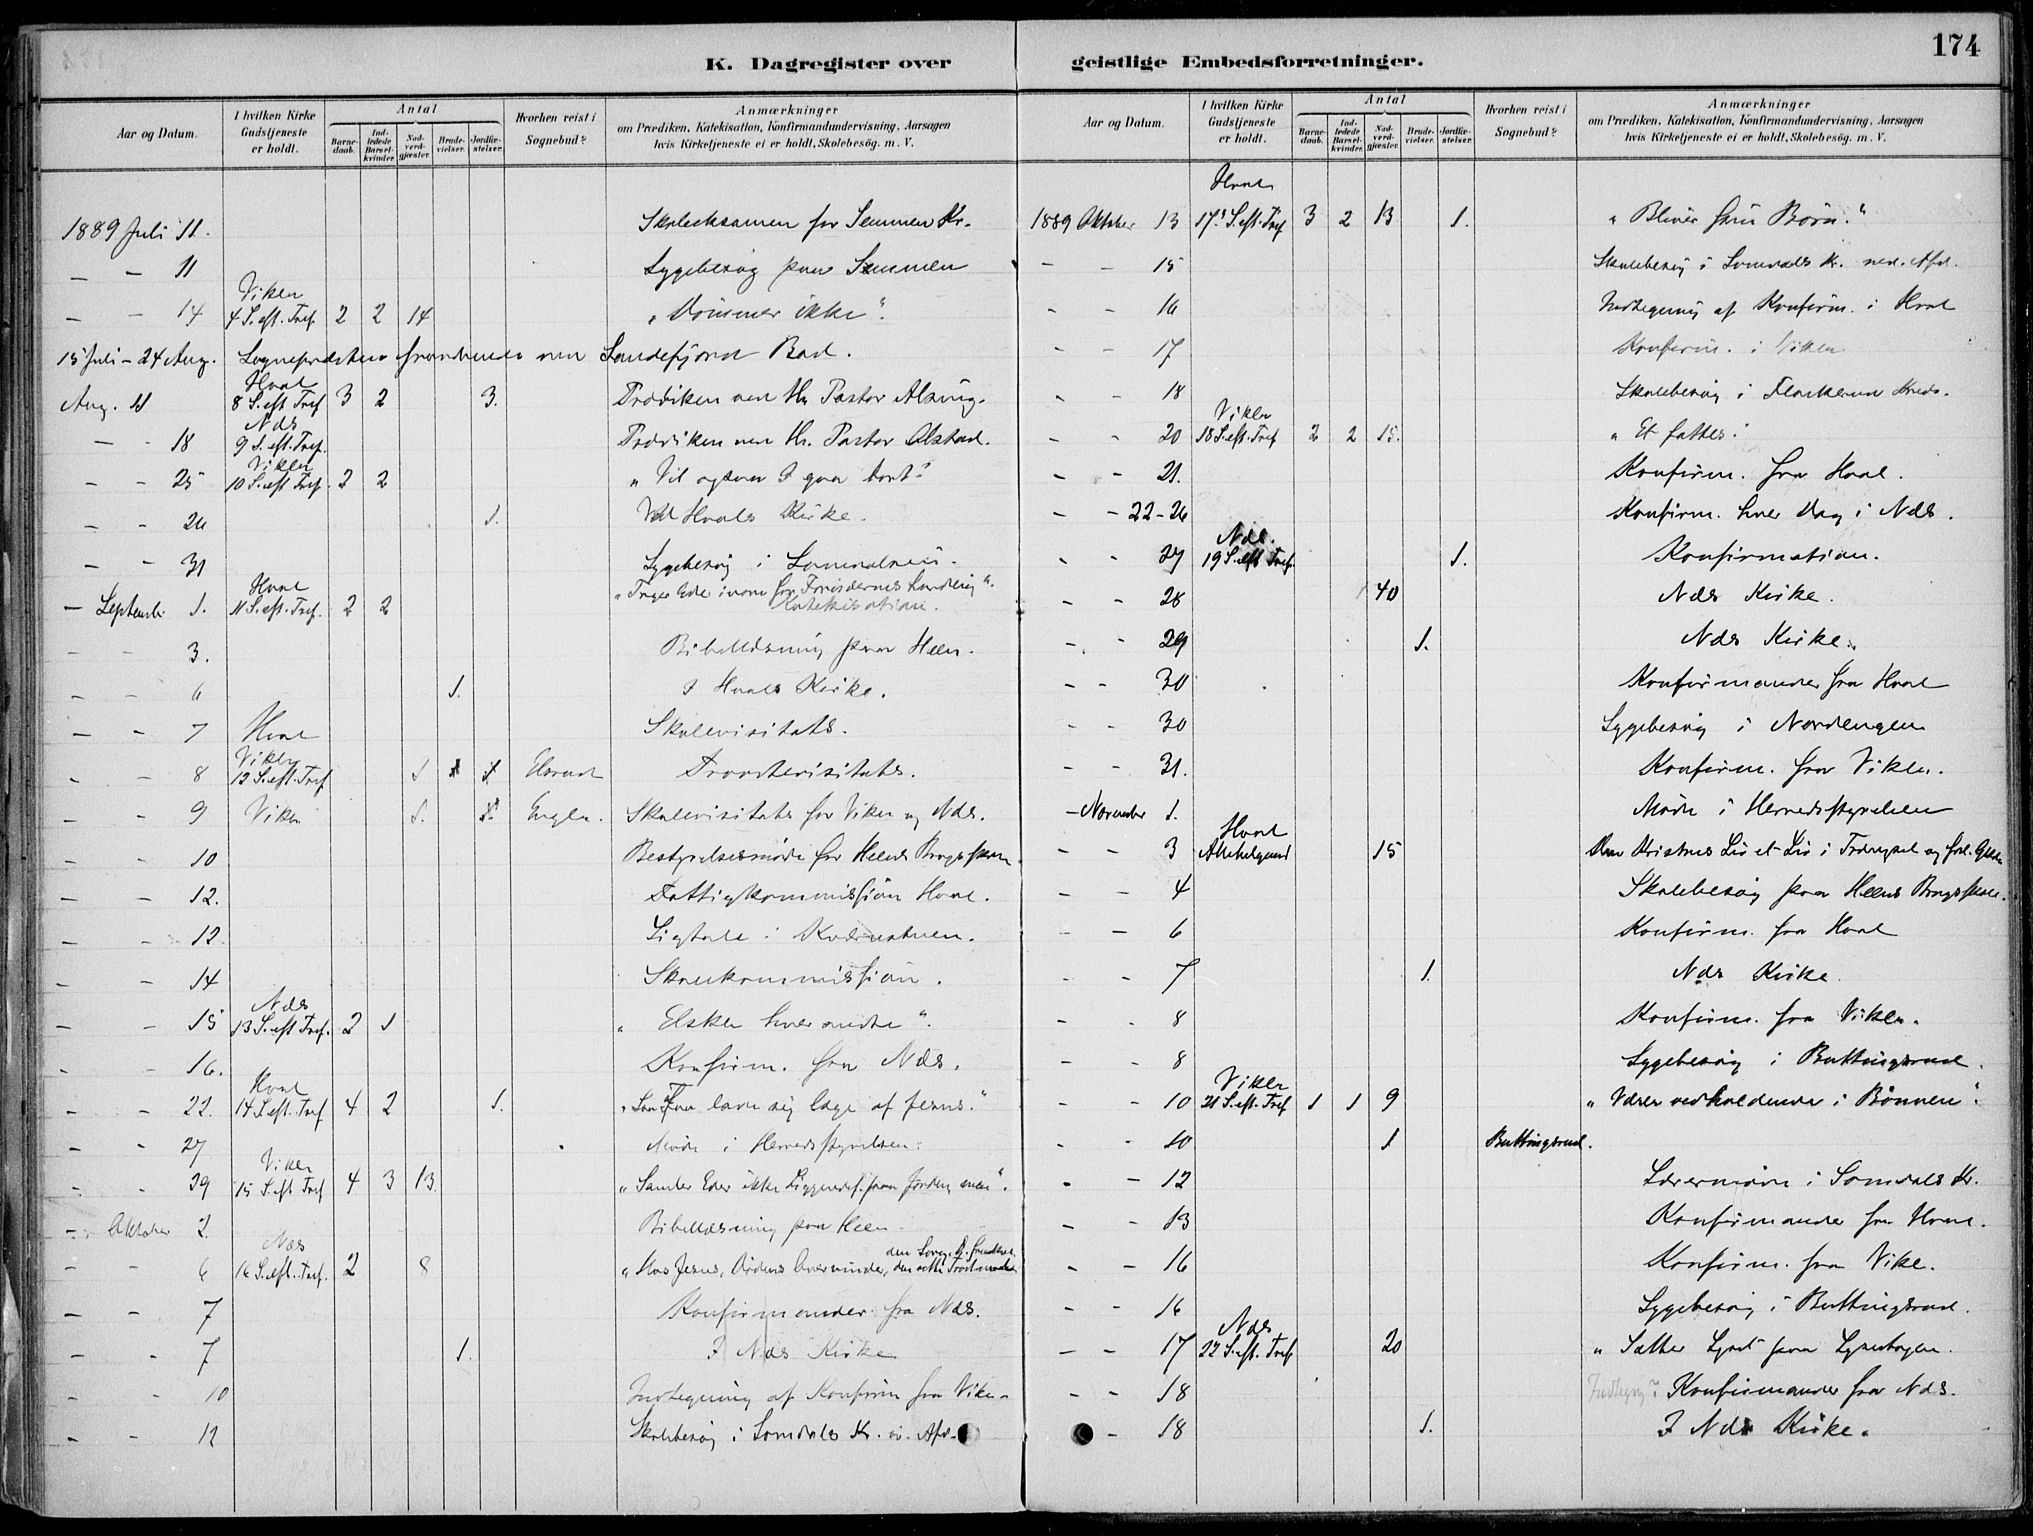 174
K. Dagregister over geistlige Embedsforretninger.
Aar og Datum. I hvilken Kirke Gudstjeneste er holdt. Antal Barnedaab. Indledede Barselkvinder. Nadverdgjæster. Brudevielser. Jordfæstelser. Hvorhen reist i Sognebud? Anmærkninger om Prædiken, Katekisation, Konfirmandundervisning, Aarsagen hvis Kirketjeneste ei er holdt, Skolebesøg. m. V.
1889 Juli 11. Skoleeksamen for Semmen Kr.
— — 11 Sygebesøg paa Semmen
— — 14 Viker 4 S. eft. Tref. 2 2 14 "Dømmer ikke".
15 Juli – 24 Aug. Sognepresten fraværende ved Sandefjord Bad.
Aug. 11 Hval 8 S. eft. Tref 3 2 3. Prædiken ved Hr. Pastor
— - 18 Næs 9 S. eft. Tref. Prædiken ved Hr. Pastor Alstad.
- - 25 Viker 10 S. eft. Tref. 2 2 "Vil ogsaa I gaa bort?"
- - 26 1. Ved Hvals Kirke.
- - 31 Sygebesøg i
— September 1. Hval 11 S. eft. Tref. 2 2 Katekisation.
- - 3. Bibellæsning paa Heen.
- - 6 1. I Hvals Kirke.
- - 7 Hval Skolevisitats.
- - 8 Viker 12 S. eft. Tref 1 1 1 Elsrud Provstevisitats.
- - 9 Viker 1. 1. Skolevisitats for Viker og Næs.
- - 10 Bestyrelsesmøde for Heens Brugsskole
- - 12. Fattigkommission Hval.
- - 12 Ligtale i
- - 14 Skolekommission.
- - 15 Næs 13 S. eft. Tref. 2 1 "Elsker hverandre".
- - 16. Konfirm. fra Næs.
- - 22. Hval 14 S. eft. Tref 4 2 1. lade sig læge af Jesus."
- - 27 Møde i Herredsstyrelsen.
- - 29 Viker 15 S. eft. Tref 4 3 13. "Samler Eder ikke Liggendef. paa Jorden, men".
- Oktober 2. Bibellæsning paa Heen.
- - 6 Næs 16 S. eft. Tref. 2 8 "Hos Jesus, Dødens Overvinder,
- - 7 Konfirmander fra Næs.
- - 7 1. I Næs Kirke
- - 10 Indtegning af Konfirm fra Viker
- - 12 Skolebesøg i Somdals Kr. Afd.
Aar og Datum. I hvilken Kirke Gudstjeneste er holdt. Antal Barnedaab. Indledede Barselkvinder. Nadverdgjæster. Brudevielser. Jordfæstelser. Hvorhen reist i Sognebud? Anmærkninger om Prædiken, Katekisation, Konfirmandundervisning, Aarsagen hvis Kirketjeneste ei er holdt, Skolebesøg. m. V.
1889 Oktober 13 Hval 17. S. eft. Tref 3 2 13 1. "Bliver som Børn."
- - 15 Skolebesøg i Somdals Kr. ned. Afd.
- - 16 Indtegning af Konfirm. i Hval
- - 17 Konfirm. i Viker
- - 18 Skolebesøg i Kreds.
- - 20 Viker 18 S. eft. Tref 2 2 15. "Et fattes".
- - 21. Konfirm. fra Hval.
- - 22-26 Konfirm. hver Dag i Næs.
- - 27 Næs. 19 S. eft. Tref. 1. Konfirmation.
- - 28 40 Næs Kirke.
- - 29 1. Næs Kirke.
- - 30 Konfirmander fra Hval
- - 30 Sygebesøg i Nordengen
- - 31. Konfirm. fra Viker.
- November 1. Møde i Herredsstyrelsen
- - 3 Hval Allehelgensd 15 Den Kristnes Liv et Liv i Trængsel og
- - 4 Skolebesøg paa Heens Brugsskole.
- - 6 Konfirm. fra Hval
- - 7 1. Næs Kirke.
- - 8 Konfirm. fra Viker.
- - 8 Sygebesøg i Buttingsrud.
- - 10 Viker 21 S. eft. Tref 1 1 9 "Værer vedholdende i Bønnen".
- - 10 1 Buttingsrud.
- - 12 Lærermøde i Somdals Kr.
- - 13 Konfirmander fra Hval.
- - 16 Konfirm. fra Vike.
- - 16 Sygebesøg i Buttingsrud.
- - 17 Næs 22 S. eft. Tref 20 "Sætter Lyset paa Lysestagen.
- - 18 Konfirmander fra Næs.
- 18 1. I Næs Kirke.